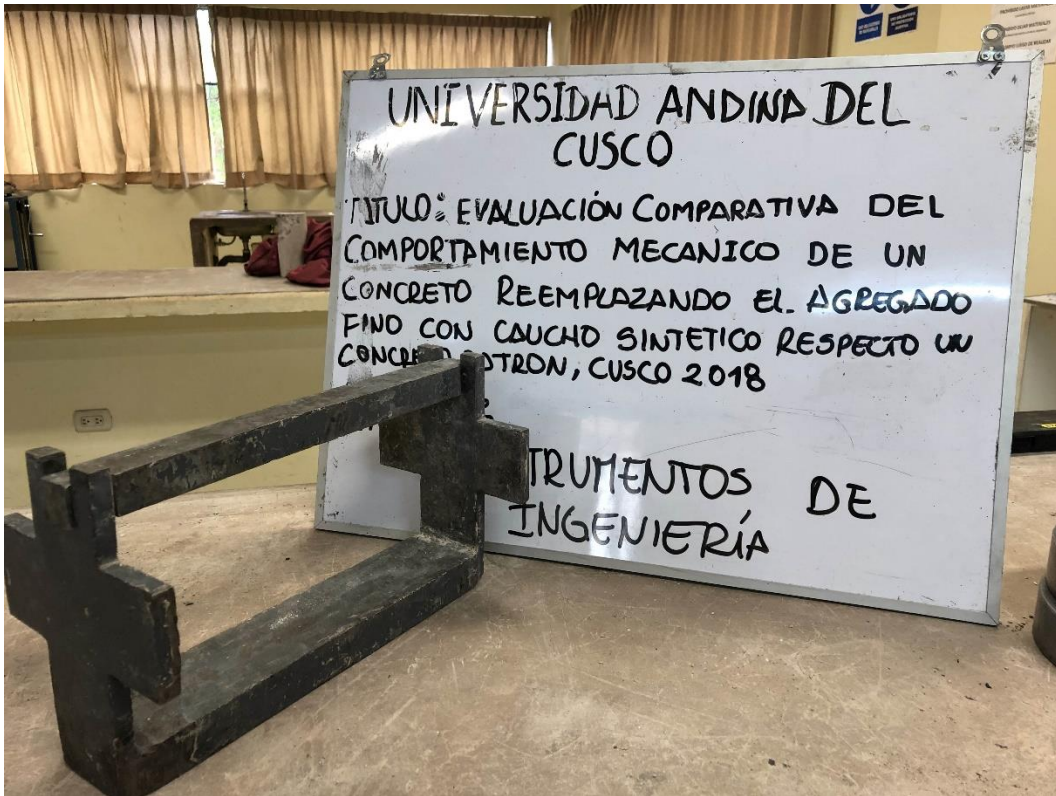 UNIVERSIDAD ANDINA DEL
CUSCO
TITULO: EVALUACIÓN COMPARATIVA DEL
COMPORTAMIENTO MECANICO DE UN
CONCRETO REEMPLAZANDO EL AGREGADO
FINO CON CAUCHO SINTETICO RESPECTO UN
CUSCO 2018
DE
INGENIERÍA